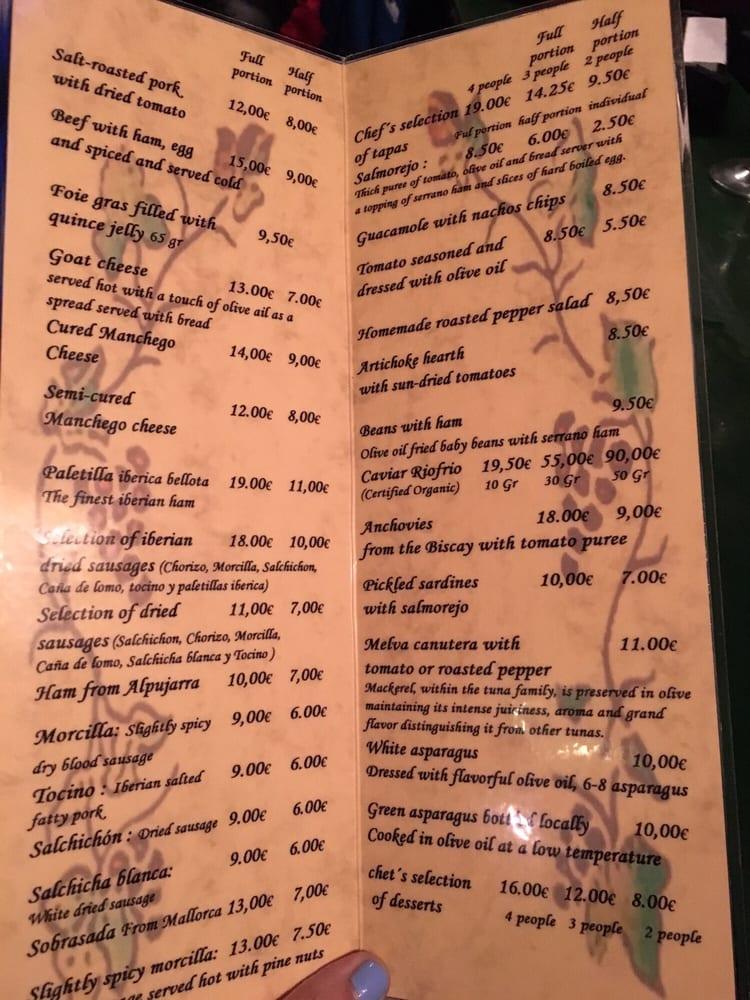 Full portion Half portion
Salt-roasted pork
with dried tomato 12,00€ 8,00€
Beef with ham, egg
and spiced and served cold 15,00€ 9,00€
Foie gras filled with
quince jelly 65 gr 9,50€
Goat cheese 13.00€ 7.00€
served hot with a touch of olive ail as a
spread served with bread
Cured Manchego
Cheese 14,00€ 9,00€
Semi-cured
Manchego cheese 12.00€ 8,00€
Paletilla iberica bellota 19.00€ 11,00€
The finest iberian ham
Selection of iberian 18.00€ 10,00€
dried sausages (Chorizo, Morcilla, Salchichon,
Caña de lomo, tocino y paletillas iberica)
Selection of dried 11,00€ 7,00€
sausages (Salchichon, Chorizo, Morcilla,
Caña de lomo, Salchicha blanca y Tocino )
Ham from Alpujarra 10,00€ 7,00€
Morcilla: Slightly spicy 9,00€ 6.00€
dry blood sausage
Tocino : Iberian salted 9.00€ 6.00€
fatty pork
Salchichón : Dried sausage 9.00€ 6.00€
Salchicha blanca: 9.00€ 6.00€
White dried sausage
Sobrasada From Mallorca 13,00€ 7,00€
Slightly spicy morcilla: 13.00€ 7.50€
served hot with pine nuts
Full portion Half portion
4 people 3 people 2 people
Chef's selection 19.00€ 14.25€ 9.50€
of tapas Ful portion half portion individual
Salmorejo : 8.50€ 6.00€ 2.50€
Thich puree of tomato, olive oil and bread server with
a topping of serrano ham and slices of hard boiled egg.
Guacamole with nachos chips 8.50€
Tomato seasoned and 8.50€ 5.50€
dressed with olive oil
Homemade roasted pepper salad 8,50€
Artichoke hearth 8.50€
with sun-dried tomatoes
Beans with ham 9.50€
Olive oil fried baby beans with serrano ham
Caviar Riofrio 19,50€ 55,00€ 90,00€
(Certified Organic) 10 Gr 30 Gr 50 Gr
Anchovies 18.00€ 9,00€
from the Biscay with tomato puree
Pickled sardines 10,00€ 7.00€
with salmorejo
Melva canutera with 11.00€
tomato or roasted pepper
Mackerel, within the tuna family, is preserved in olive
maintaining its intense juiciness, aroma and grand
flavor distinguishing it from other tunas.
White asparagus 10,00€
Dressed with flavorful olive oil, 6-8 asparagus
Green asparagus bottled locally 10,00€
Cooked in olive oil at a low temperature
chet's selection 16.00€ 12.00€ 8.00€
of desserts 4 people 3 people 2 people